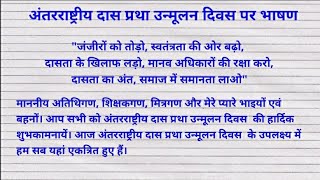 अंतरराष्ट्रीय दास प्रथा उन्मूलन दिवस पर भाषण
"जंजीरों को तोड़ो, स्वतंत्रता की ओर बढ़ो,
दासता के खिलाफ लड़ो, मानव अधिकारों की रक्षा करो,
दासता का अंत, समाज में समानता लाओ"
माननीय अतिथिगण, शिक्षकगण, मित्रगण और मेरे प्यारे भाइयों एवं
बहनों। आप सभी को अंतरराष्ट्रीय दास प्रथा उन्मूलन दिवस की हार्दिक
शुभकामनायें। आज अंतरराष्ट्रीय दास प्रथा उन्मूलन दिवस के उपलक्ष्य में
हम सब यहां एकत्रित हुए हैं।